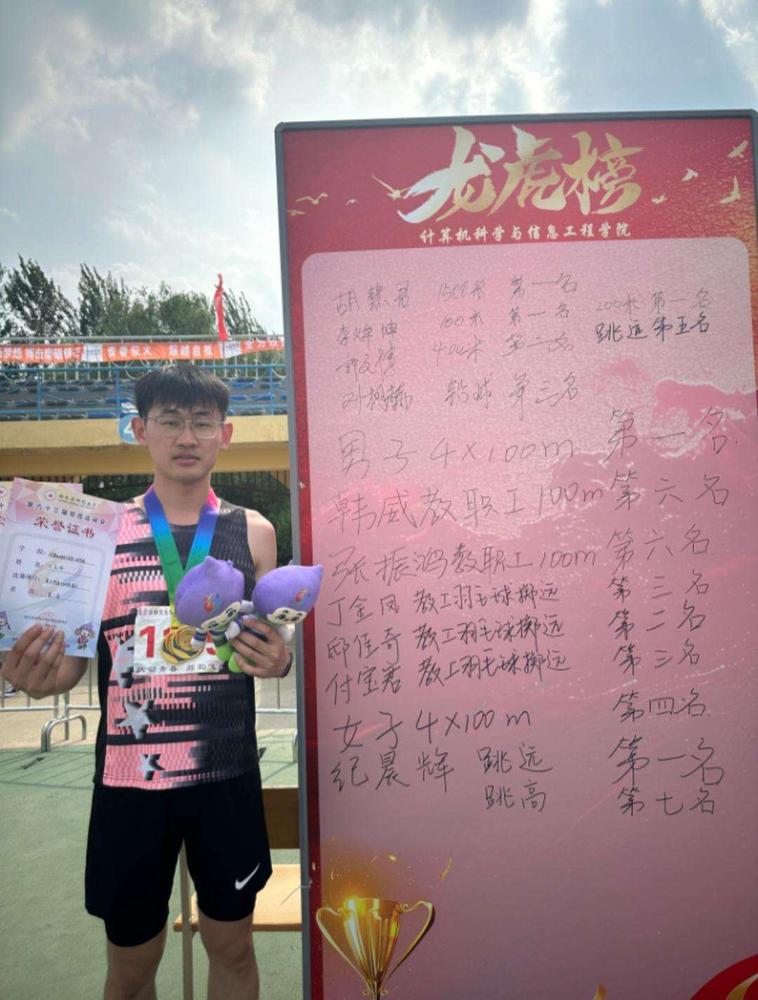 龙虎榜
计算机科学与信息工程学院
1500米 第一名
100米 第一名 200米 第一名
400米 第二名 跳远 第五名
铅球 第三名
男子4×100m 第一名
韩威教职工100m第六名
张振鸿教职工100m 第六名
丁金凤 教工羽毛球掷远 第三名
邸佳奇 教工羽毛球掷远 第二名
付宝君 教工羽毛球掷远 第三名
女子4×100m 第四名
纪晨辉 跳远 第一名
跳高 第七名
荣誉证书